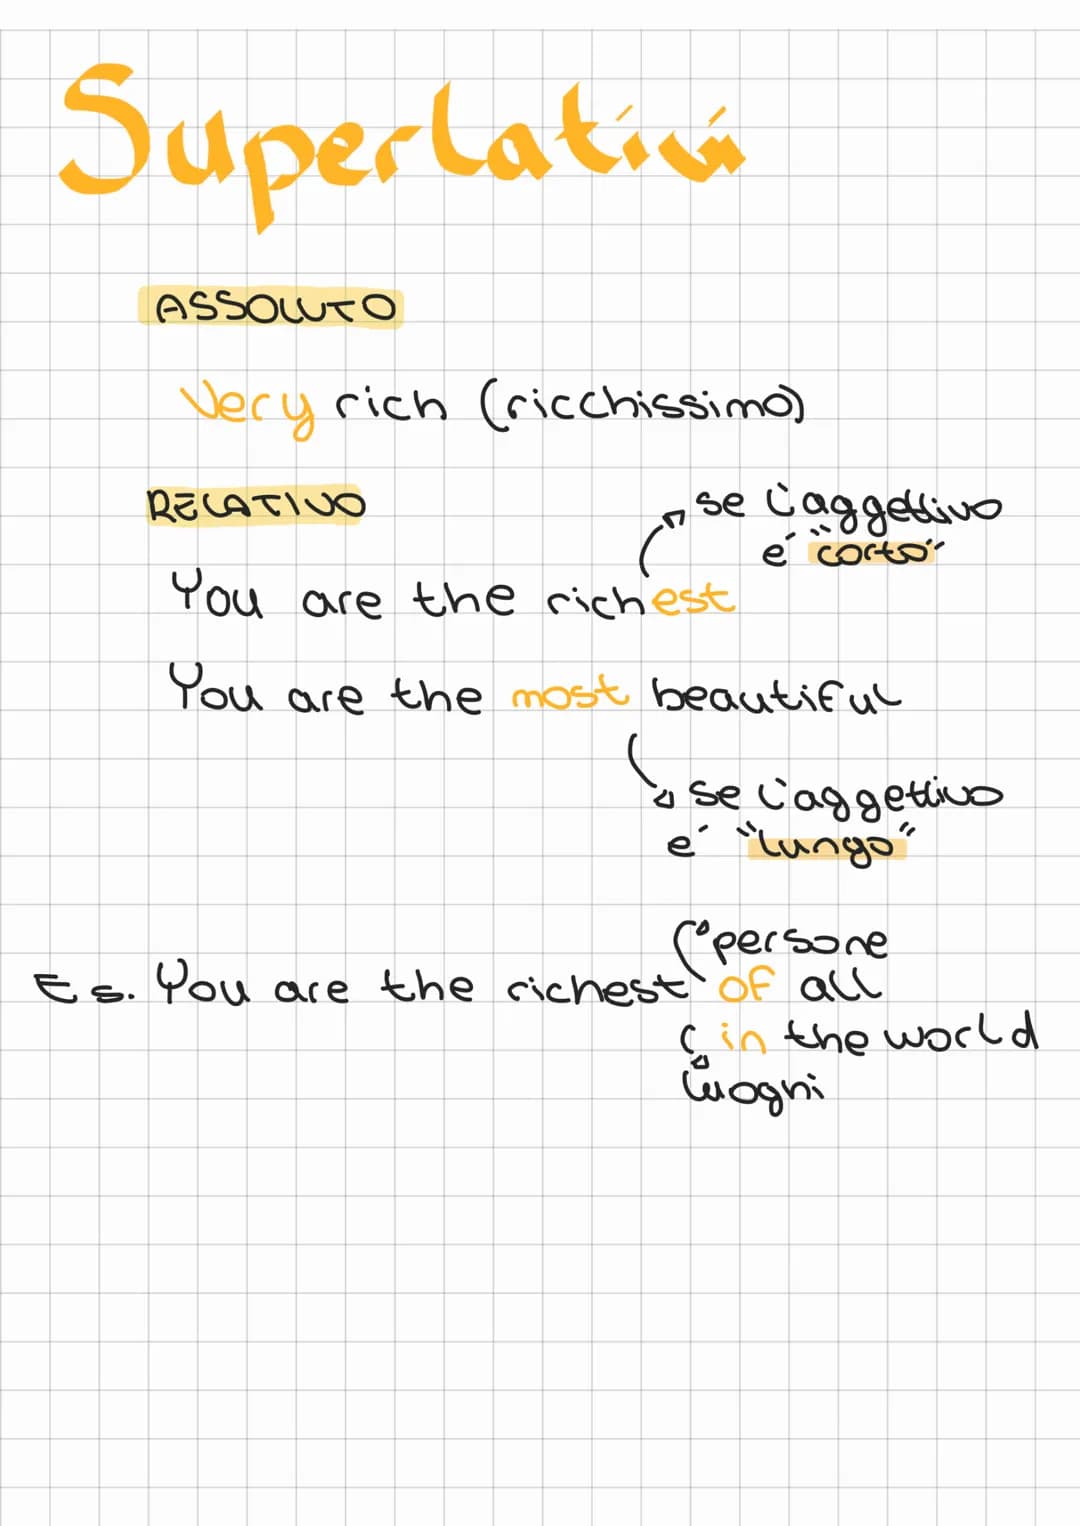 Superlativi
ASSOLUTO
Very rich (ricchissimo)
RELATIVO
se l'aggettivo
e' "corto"
You are the richest
You are the most beautiful
se l'aggettivo
e' "lungo"
persone
Es. You are the richest of all
in the world
luoghi